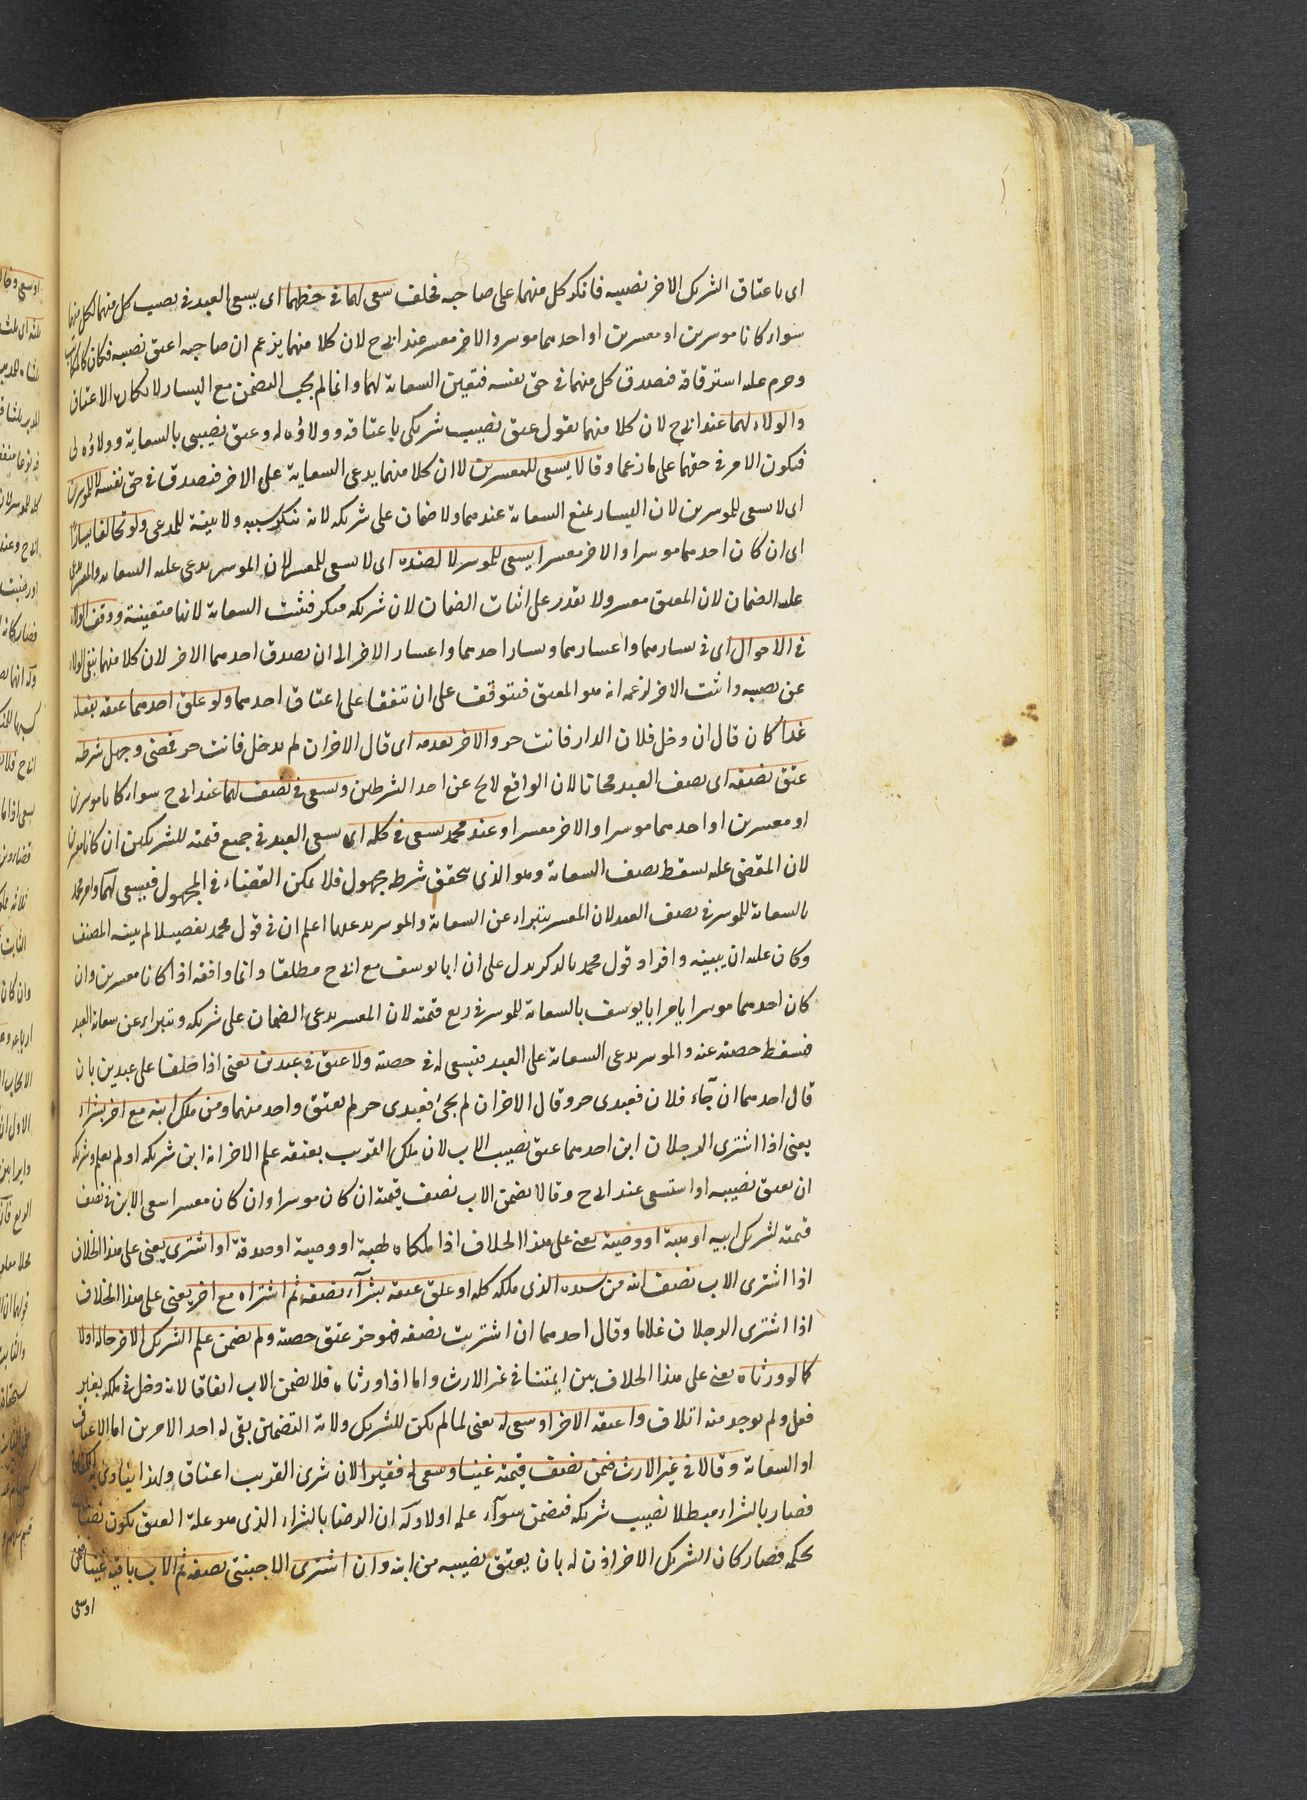 اى باعتاق الشريك الاخر نصيبه فانكر كل منهما على صاحبه فحلف سعى لهما فى حظهما اى يسعى العبد فى نصيب كل منهما لكل منهما
سواء كانا موسرين او معسرين او احدهما موسر والاخر معسر عند ابى ح لان كلا منهما يزعم ان صاحبه اعتق نصيبه فكان كالمكاتب
وحرم عليه استرقاقه فصدق كل منهما فى حق نفسه فتعين السعاية لهما وانما لم يجب التضمن مع اليسار لانكار الاعتاق
والولاء لهما عند ابى ح لان كلا منهما يقول عتق نصيب شريكى باعتاقه وولاؤه له وعتق نصيبى بالسعاية وولاؤه لى
فيكون الامر فى حقهما على ما زعما وقالا يسعى للمعسرين لا ان كلا منهما يدعى السعاية على الاخر فصدق فى حق نفسه لا للموسرين
اى لا يسعى للموسرين لان اليسار يمنع السعاية عندهما ولا ضمان على شريكه لانه ينكر سببه ولا بينة للمدعى ولو تخالفا يسارا
اى ان كان احدهما موسرا والاخر معسرا يسعى للموسر لا لضده اى لا يسعى للمعسر لان الموسر يدعى عليه السعاية والمعسر يدعى
عليه الضمان لان المعتق معسر ولا يقدر على اثبات الضمان لان شريكه منكر فثبت السعاية لانها متعينة ووقف الولاء
فى الاحوال اى فى يسارهما واعسارهما ويسار احدهما واعسار الاخر الى ان يصدق احدهما الاخر لان كلا منهما ينفى الولاء
عن نصيبه واثبت الاخر لزعمه انه هو المعتق فيتوقف على ان يتفقا على اعتاق احدهما ولو علق احدهما عتقه بفعله
غدا كان قال ان دخل فلان الدار فانت حر والاخر بعدمه اى قال الاخر ان لم يدخل فانت حر فمضى وجهل شرطه
عتق نصفه اى نصف العبد مجانا لان الواقع لا يخ عن احد الشرطين ويسعى فى نصف لهما عند ابى ح سواء كانا موسرين
او معسرين او احدهما موسرا والاخر معسرا وعند محمد يسعى فى كله اى يسعى العبد فى جميع قيمته للشريكين ان كانا معسرين
لان المقضى عليه بسقط نصف السعاية وهو الذى تحقق شرطه مجهول فلا يمكن القضاء فى المجهول فيسعى لهما وامر محمد
بالسعاية للموسر فى نصف العبد لان المعسر يتبراء عن السعاية والموسر يدعيها اعلم ان فى قول محمد تفصيلا لم يبينه المصنف
وكان عليه ان يبينه وافراد قول محمد بالذكر يدل على ان ابا يوسف مع ابى ح مطلقا وانما وافقه اذا كانا معسرين وان
كان احدهما موسرا يامر ابا يوسف بالسعاية للموسر فى ربع قيمته لان المعسر يدعى الضمان على شريكه ويتبراء عن سعاية العبد
فسقط حصته عنه والموسر يدعى السعاية على العبد فيسعى له فى حصته ولا عتق فى عبدين يعنى اذا حلفا على عبدين بان
قال احدهما ان جآء فلان فعبدى حر وقال الاخر ان لم يجئ فعبدى حر لم يعتق واحد منهما ومن ملك ابنه مع اخر بشراء
يعنى اذا اشترى الرجلان ابن احدهما عتق نصيب الاب لان ملك القريب يعتقه علم الاخر انه ابن شريكه او لم يعلم وشريكه
ان يعتق نصيبه او استسعى عند ابى ح وقالا يضمن الاب نصف قيمته ان كان موسرا وان كان معسرا سعى الابن فى نصف
قيمته لشريك ابيه او هبة او وصية يعنى على هذا الخلاف اذا ملكاه بهبة او وصية او صدقة او اشترى يعنى على هذا الخلاف
اذا اشترى الاب نصف ابنه من سيده الذى ملكه كله او علق عتقه بشرآء نصفه ثم اشتراه مع اخر يعنى على هذا الخلاف
اذا اشترى الرجلان غلاما وقال احدهما ان اشتريت نصفه فهو حر عتق حصته ولم يضمن علم الشريك الاخر حاله اولا
كما لو ورثاه يعنى على هذا الخلاف بين ايمتنا فى غير الارث واما اذا ورثاه فلا يضمن الاب اتفاقا لانه دخل فى ملكه بغير
فعل ولم يوجد منه اتلاف واعتقه الاخر او سعى له يعنى لما لم يكن للشريك ولاية التضمين بقى له احد الامرين اما الاعتاق
او السعاية وقالا فى غير الارث ضمن نصف قيمته غنيا وسعى له فقيرا لان شرى القريب اعتاق ولهذا يتادى به الكفارة
فصار بالشراء مبطلا نصيب شريكه فيضمن سوآء علم او لا وله ان الرضا بالشراء الذى هو علة العتق يكون رضا
بحكمه فصار كان الشريك الاخر اذن له بان يعتق نصيبه من ابنه وان اشترى الاجنبى نصفه ثم الاب باقيه غنيا ضمن
او سعى